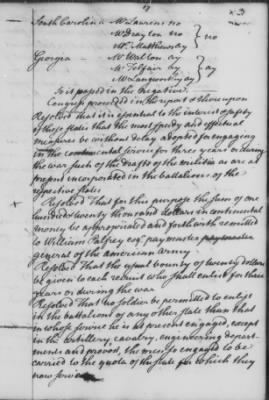 South Carolina Mr Laurens no
Mr Drayton no } no
Mr Matthews ay
Georgia - Mr Walton ay
Mr Telfair ay } ay
Mr Langworthy ay
So it passed in the negative.
Congress proceeded in the report & thereupon
Resolved that it is essential to the interest & safety
of these states that the most speedy and effectual
measures be without delay adopted for engaging
in the continental service for three years or during
the war such of the drafts of the militia as are at
present incorporated in the battalions of the
respective states
Resolved That for this purpose the sum of one
hundred & twenty thousand dollars in continental
money be appropriated and forthwith remitted
to William Palfrey esqr. paymaster
general of the american army
Resolved That the usual bounty of twenty dollars
be given to each recruit who shall enlist for three
years or during the war
Resolved That no soldier be permitted to enlist
in the battalions of any other state than that
in whose service he is at present engaged, except
in the artillery, cavalry, engineering depart-
ments and provost, the men so engaged to be
carried to the quota of the state for which they
now serve